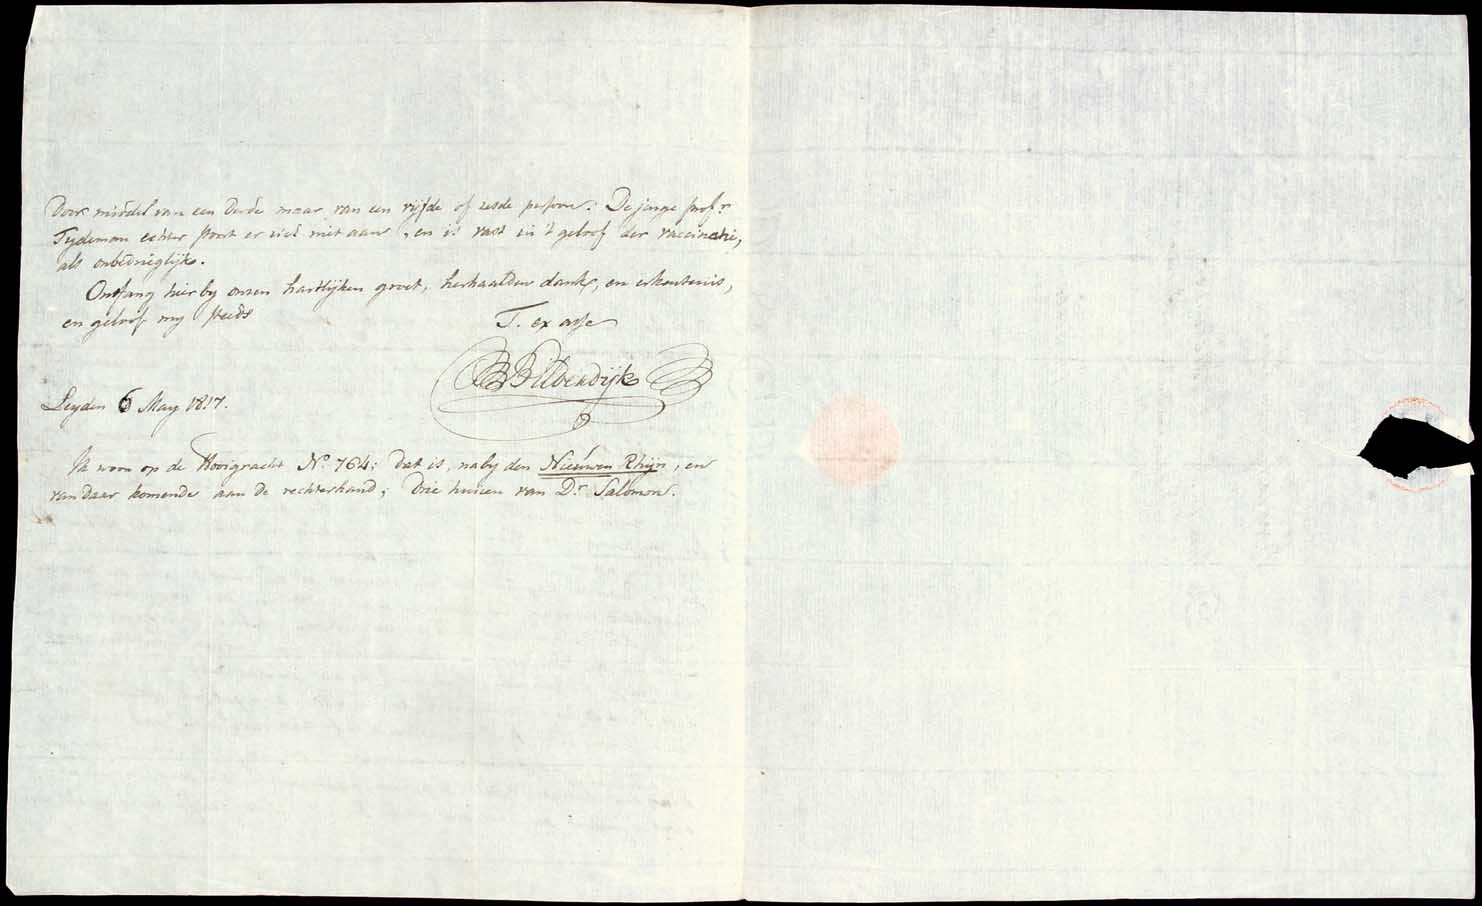 door middel van een derde maar van een vijfde of zesde persoon. De jonge prof.r
Tydeman echter stoort er zich niet aan, en is vast in 't geloof der vaccinatie,
als onbedrieglijk.
Ontfang hier by onzen hartlijken groet, herhaalden dank, en erkentenis,
en geloof my steeds
T. ex asse
Bilderdijk
Leyden 6 May 1817.
Ik woon op de Hooigracht No. 764: dat is, naby den Nieuwen Rhijn, en
van daar komende aan de rechterhand; drie huizen van Dr Salomon.